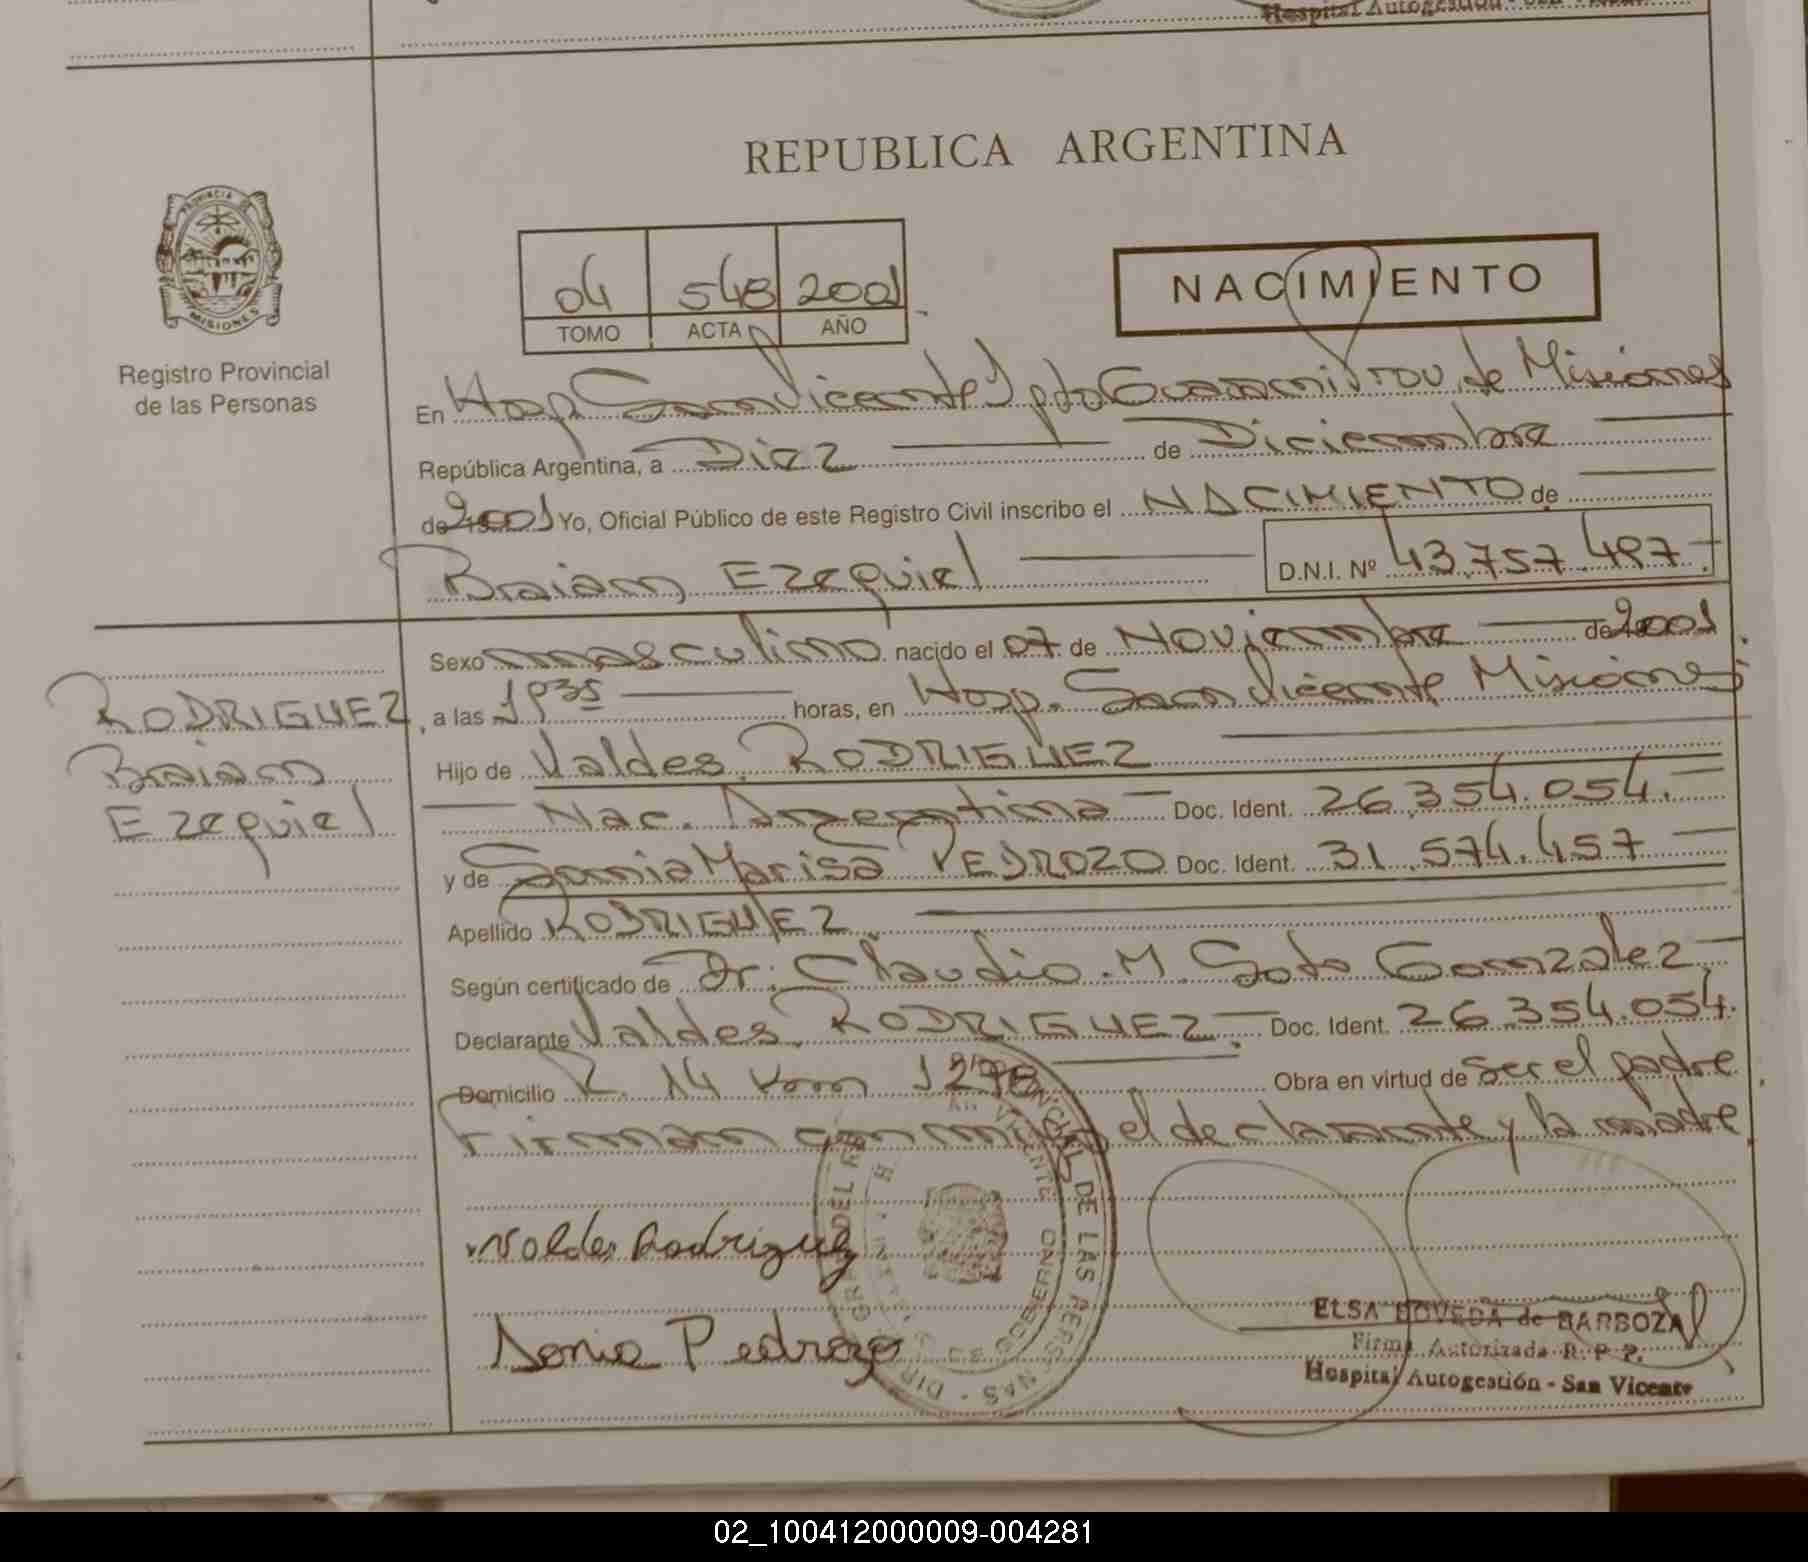 Hospital Autogestión - San Vicente
REPUBLICA ARGENTINA
PROVINCIA DE
MISIONES
Registro Provincial
de las Personas
04 548 2001
TOMO ACTA AÑO
NACIMIENTO
En Hosp San Vicente Dpto Guaraní Prov. de Misiones
República Argentina, a Diez de Diciembre
de 2001 Yo, Oficial Público de este Registro Civil inscribo el NACIMIENTO de
Braian Ezequiel D.N.I. Nº 43.757.497.
RODRIGUEZ,
Braian
Ezequiel
Sexo masculino nacido el 07 de Noviembre de 2001
a las horas, en Hosp. San Vicente Misiones
Hijo de Valdes RODRIGUEZ
Nac. Argentina Doc. Ident. 26.354.054.
y de Sonia Marisa PEDROZO Doc. Ident. 31.574.457
Apellido RODRIGUEZ
Según certificado de Dr. Claudio M. Soto Gonzalez
Declarante Valdes RODRIGUEZ. Doc. Ident. 26.354.054.
Domicilio R. 14 Km 1278 Obra en virtud de ser el padre
Firman conmigo el declarante y la madre
Valdes Rodriguez
Sonia Pedrozo
DE LAS PERSONAS
ELSA BOVEDA de BARBOZA
Firma Autorizada R. P. P.
Hospital Autogestión - San Vicente
02_100412000009-004281